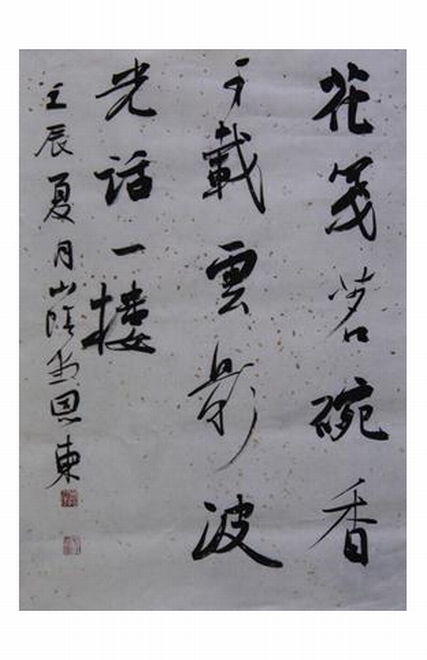 花箋茗碗香
千載雲影波
光話一樓
壬辰夏月山陰恩東